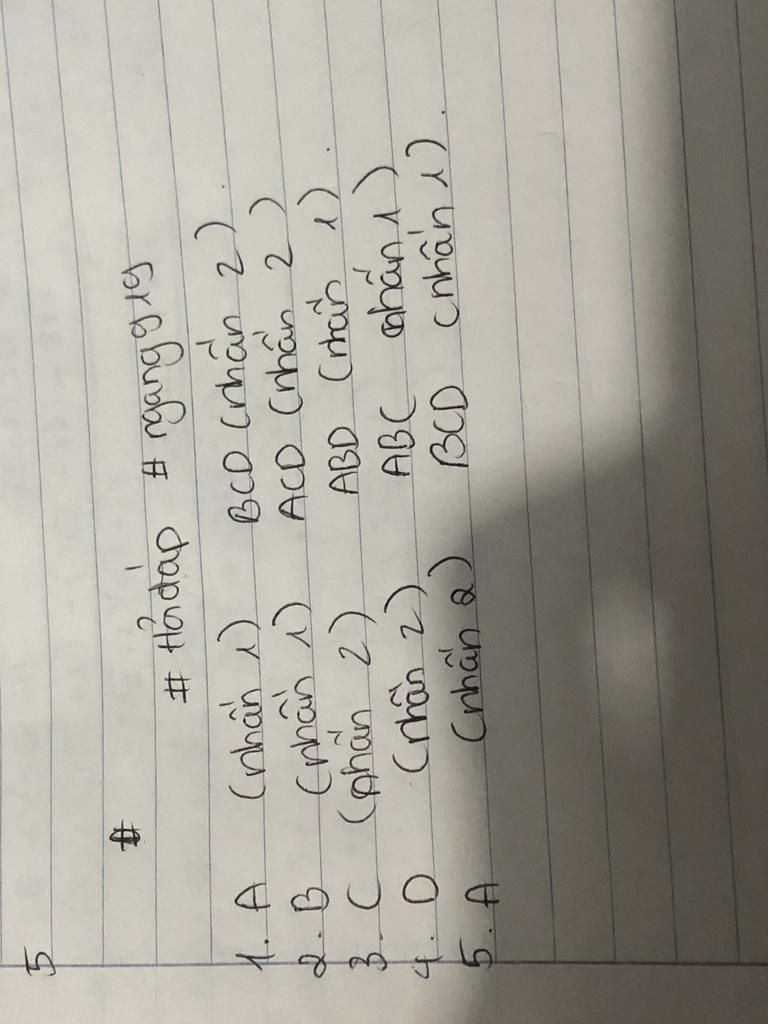 5
#
# Hỏi đáp # ngang919
1. A (nhấn 1) BCD (nhấn 2).
2. B (nhấn 1) ACD (nhấn 2)
3. C (nhấn 2) ABD (nhấn 1).
4. D (nhấn 2) ABC (nhấn 1)
5. A (nhấn 2) BCD (nhấn 1).